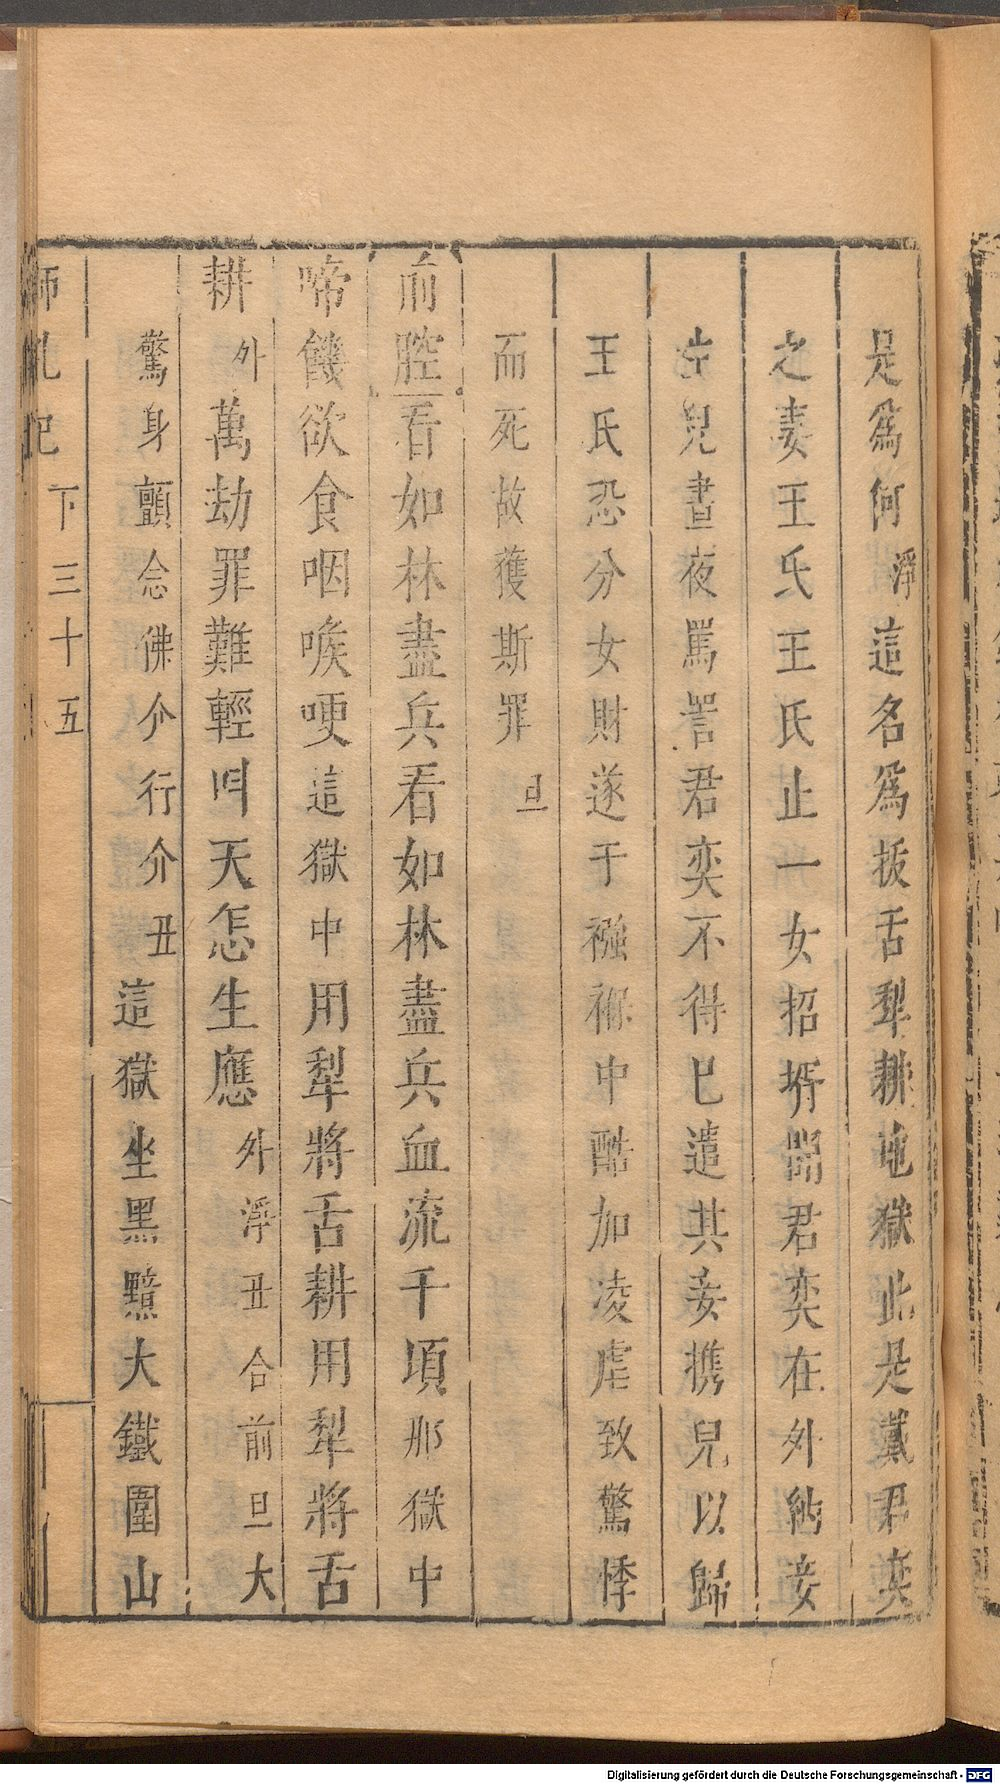 是爲何淨這名爲拔舌犁耕地獄此是戴君奕
之妻王氏王氏止一女招壻間君奕在外納妾
生兒晝夜罵詈君奕不得已遣其妾携兒以歸
王氏恐分女財遂于襁褓中酷加凌虐致驚悸
而死故獲斯罪旦
前腔看如林盡兵看如林盡兵血流千頃那獄中
啼饑欲食咽喉哽這獄中用犁將舌耕用犁將舌
耕外萬劫罪難輕叫天怎生應外淨丑合前旦大
驚身顫念佛介行介丑這獄坐黑黰大鐵圍山
師乩記下三十五
Digitalisierung gefördert durch die Deutsche Forschungsgemeinschaft - DFG